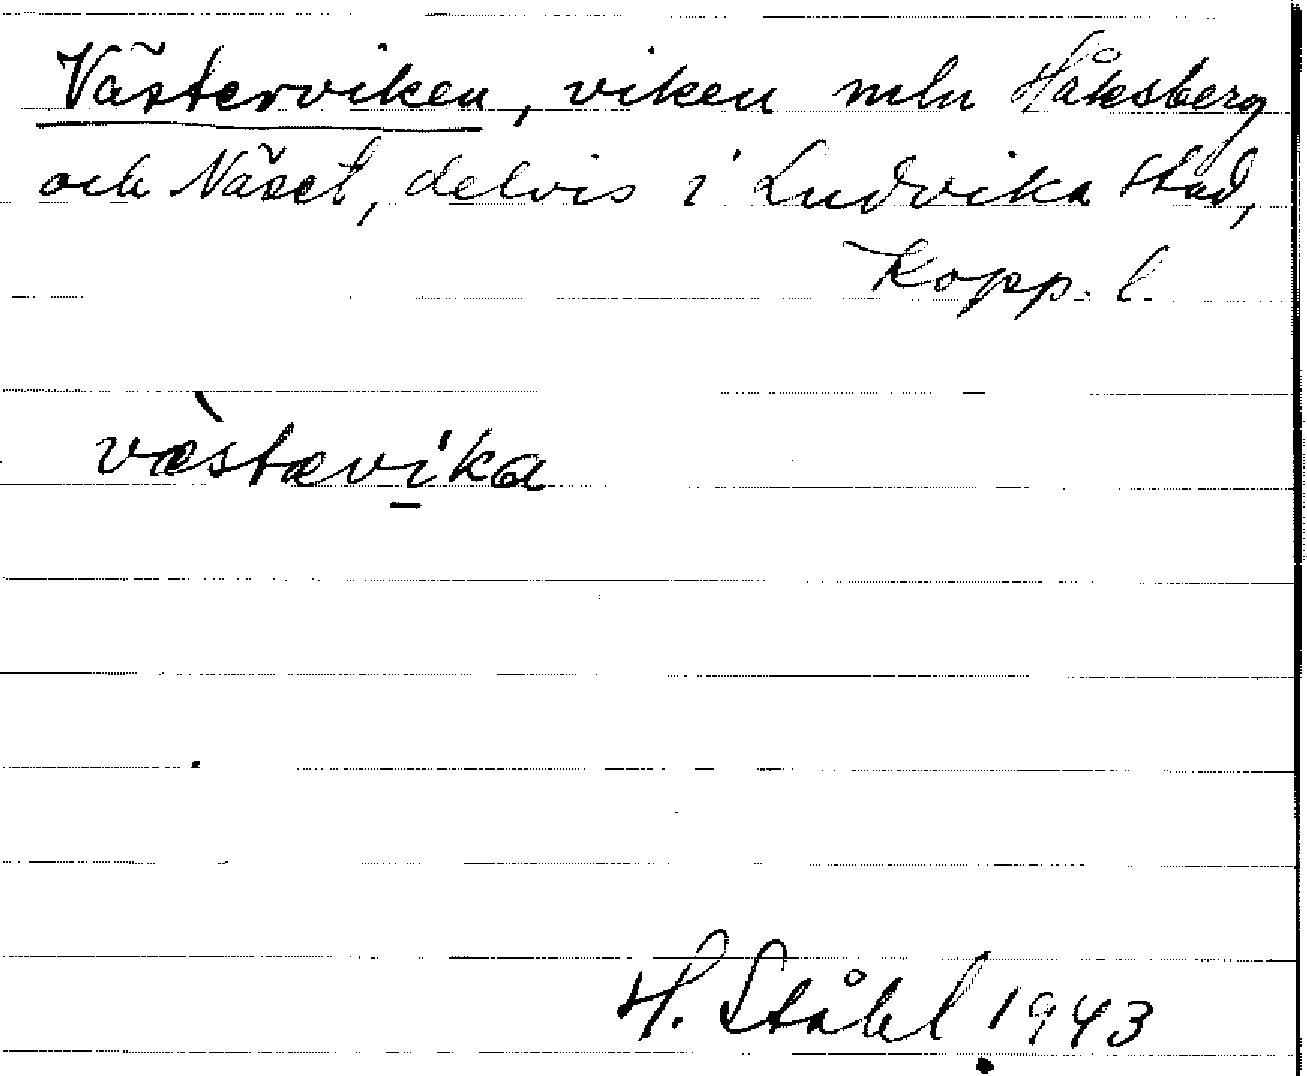 Västerviken, viken mln Håksberg
och Näset, delvis i Ludvika stad,
Kopp. l.
væ̀stævika
H. Ståhl 1943